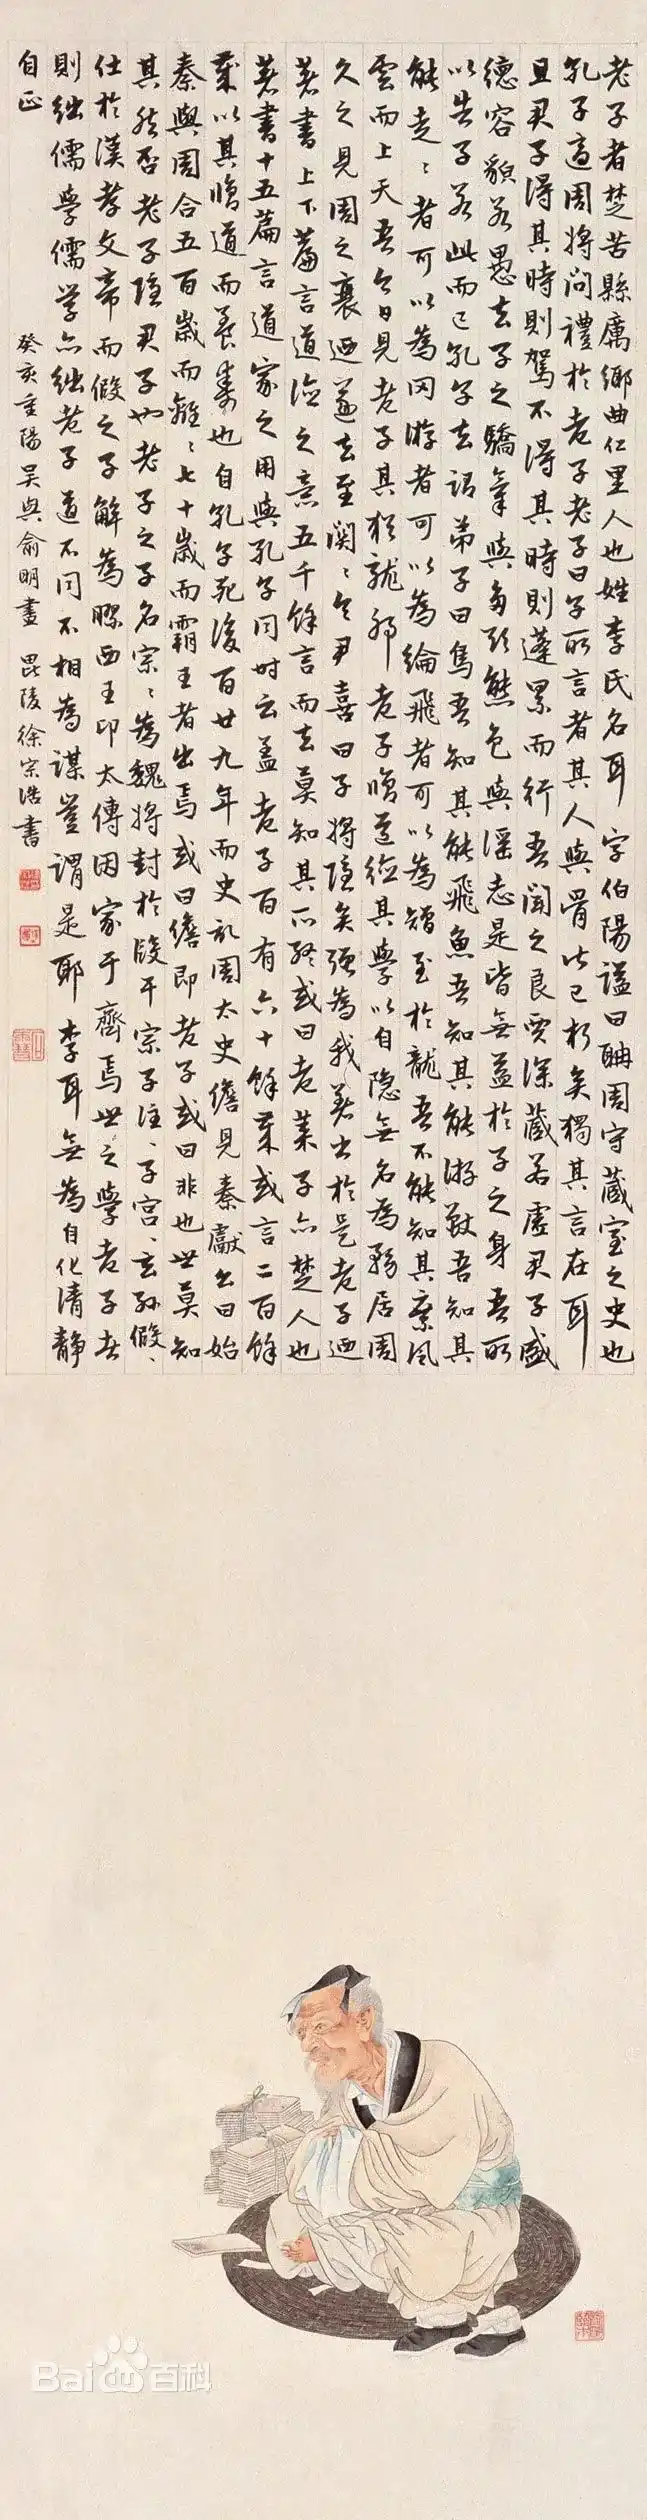 老子者楚苦縣厲鄉曲仁里人也姓李氏名耳字伯陽謚曰聃周守藏室之史也
孔子適周將問禮於老子老子曰子所言者其人與骨皆已朽矣獨其言在耳
且君子得其時則駕不得其時則蓬累而行吾聞之良賈深藏若虛君子盛
德容貌若愚去子之驕氣與多欲態色與淫志是皆無益於子之身吾所
以告子若此而已孔子去謂弟子曰鳥吾知其能飛魚吾知其能游獸吾知其
能走〻者可以為罔游者可以為綸飛者可以為矰至於龍吾不能知其乘風
雲而上天吾今日見老子其猶龍邪老子脩道德其學以自隱無名為務居周
久之見周之衰迺遂去至關〻令尹喜曰子將隱矣彊為我著書於是老子迺
著書上下篇言道德之意五千餘言而去莫知其所終或曰老萊子亦楚人也
著書十五篇言道家之用與孔子同時云蓋老子百有六十餘歲或言二百餘
歲以其脩道而養壽也自孔子死後百廿九年而史記周太史儋見秦獻公曰始
秦與周合五百歲而離〻七十歲而霸王者出焉或曰儋即老子或曰非也世莫知
其然否老子隱君子也老子之子名宗〻為魏將封於段干宗子注〻子宮〻玄孫假〻
仕於漢孝文帝而假之子解為膠西王卬太傅因家于齊焉世之學老子者
則絀儒學儒學亦絀老子道不同不相為謀豈謂是耶李耳無為自化清靜
自正
癸亥重陽吳興俞明畫毘陵徐宗浩書
Bai 百科